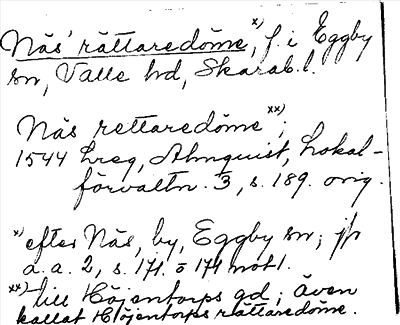 Näs' rättaredöme x), f. i Eggby
sn, Valle hd, Skarab.l.
Näs rettaredöme xx);
1544 Lreg, Almquist, Lokal-
förvaltn. 3, s. 189. orig.
x) efter Näs, by, Eggby sn; jfr
a. a. 2, s. 171. o 174 not 1.
xx) till Höjentorps gd; även
kallat Höjentorps rättaredöme.